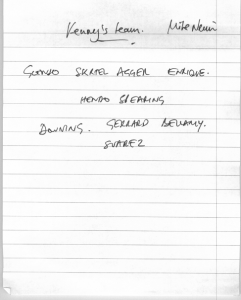 Kenny's team. Mike Nevin
GLONJO SKRTEL AGGER ENRIQUE.
HENDO SPEARING
DOWNING. GERRARD BELLAMY.
SUAREZ